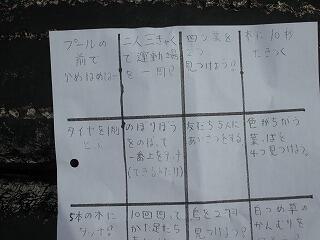 プールの
前で
かめはめはー
二人三きゃく
で運動場を
一周!
四つ葉を
さつ
見つけよう!
木に10秒
だきつく
タイヤを1周
とぶ
のぼりぼう
をのぼって
一番上をタッチ
(できるかたり)
友だち5人に
あいさつをする
色がちがう
葉っぱを
4つ見つけよう。
5本の木に
タッチ!
10回回って
かた足たち
鳥を2羽
見つけよう!
白つめ草の
かんむりを